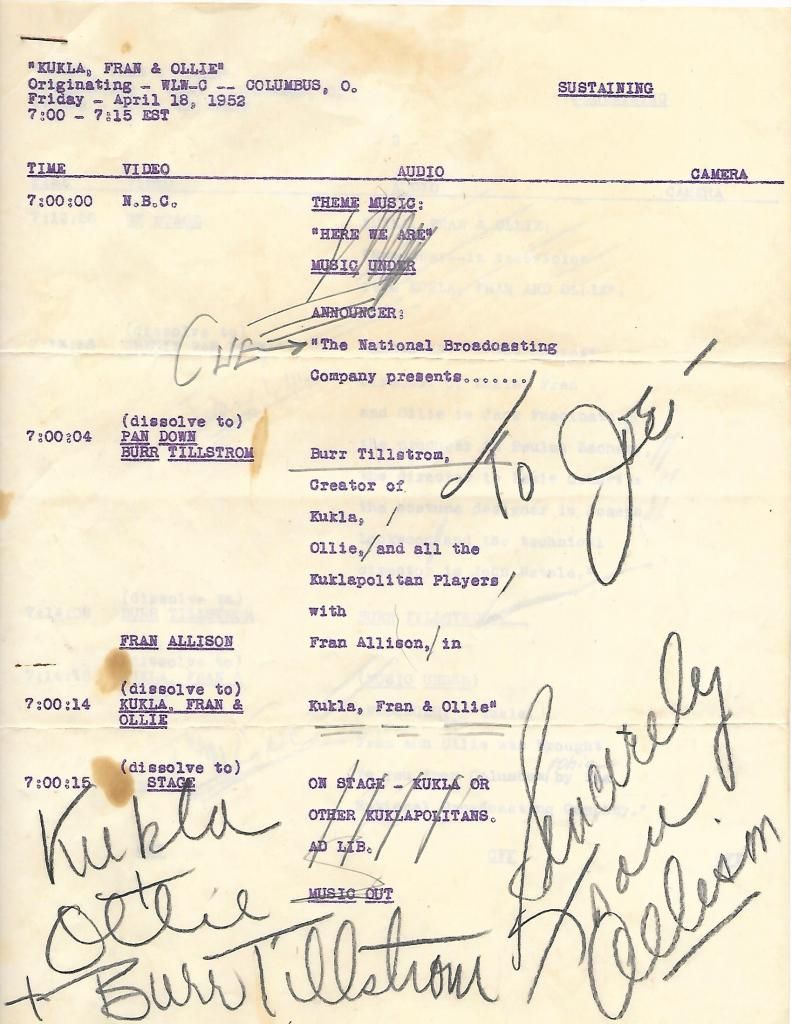 "KUKLA, FRAN & OLLIE"
Originating - WLW-C -- COLUMBUS, O.
SUSTAINING
Friday - April 18, 1952
7:00 - 7:15 EST
TIME VIDEO AUDIO CAMERA
7:00:00 N.B.C. THEME MUSIC:
"HERE WE ARE"
MUSIC UNDER
ANNOUNCER:
CUE "The National Broadcasting
Company presents.......
(dissolve to)
7:00:04 PAN DOWN
BURR TILLSTROM Burr Tillstrom,
To Joe -
Creator of
Kukla,
Ollie, and all the
Kuklapolitan Players
with
FRAN ALLISON Fran Allison, in
(dissolve to)
7:00:14 KUKLA, FRAN & Kukla, Fran & Ollie"
OLLIE
(dissolve to)
7:00:15 STAGE ON STAGE - KUKLA OR
OTHER KUKLAPOLITANS.
AD LIB.
MUSIC OUT
Kukla
+
Ollie
+ Burr Tillstrom
Sincerely
Fran
Allison